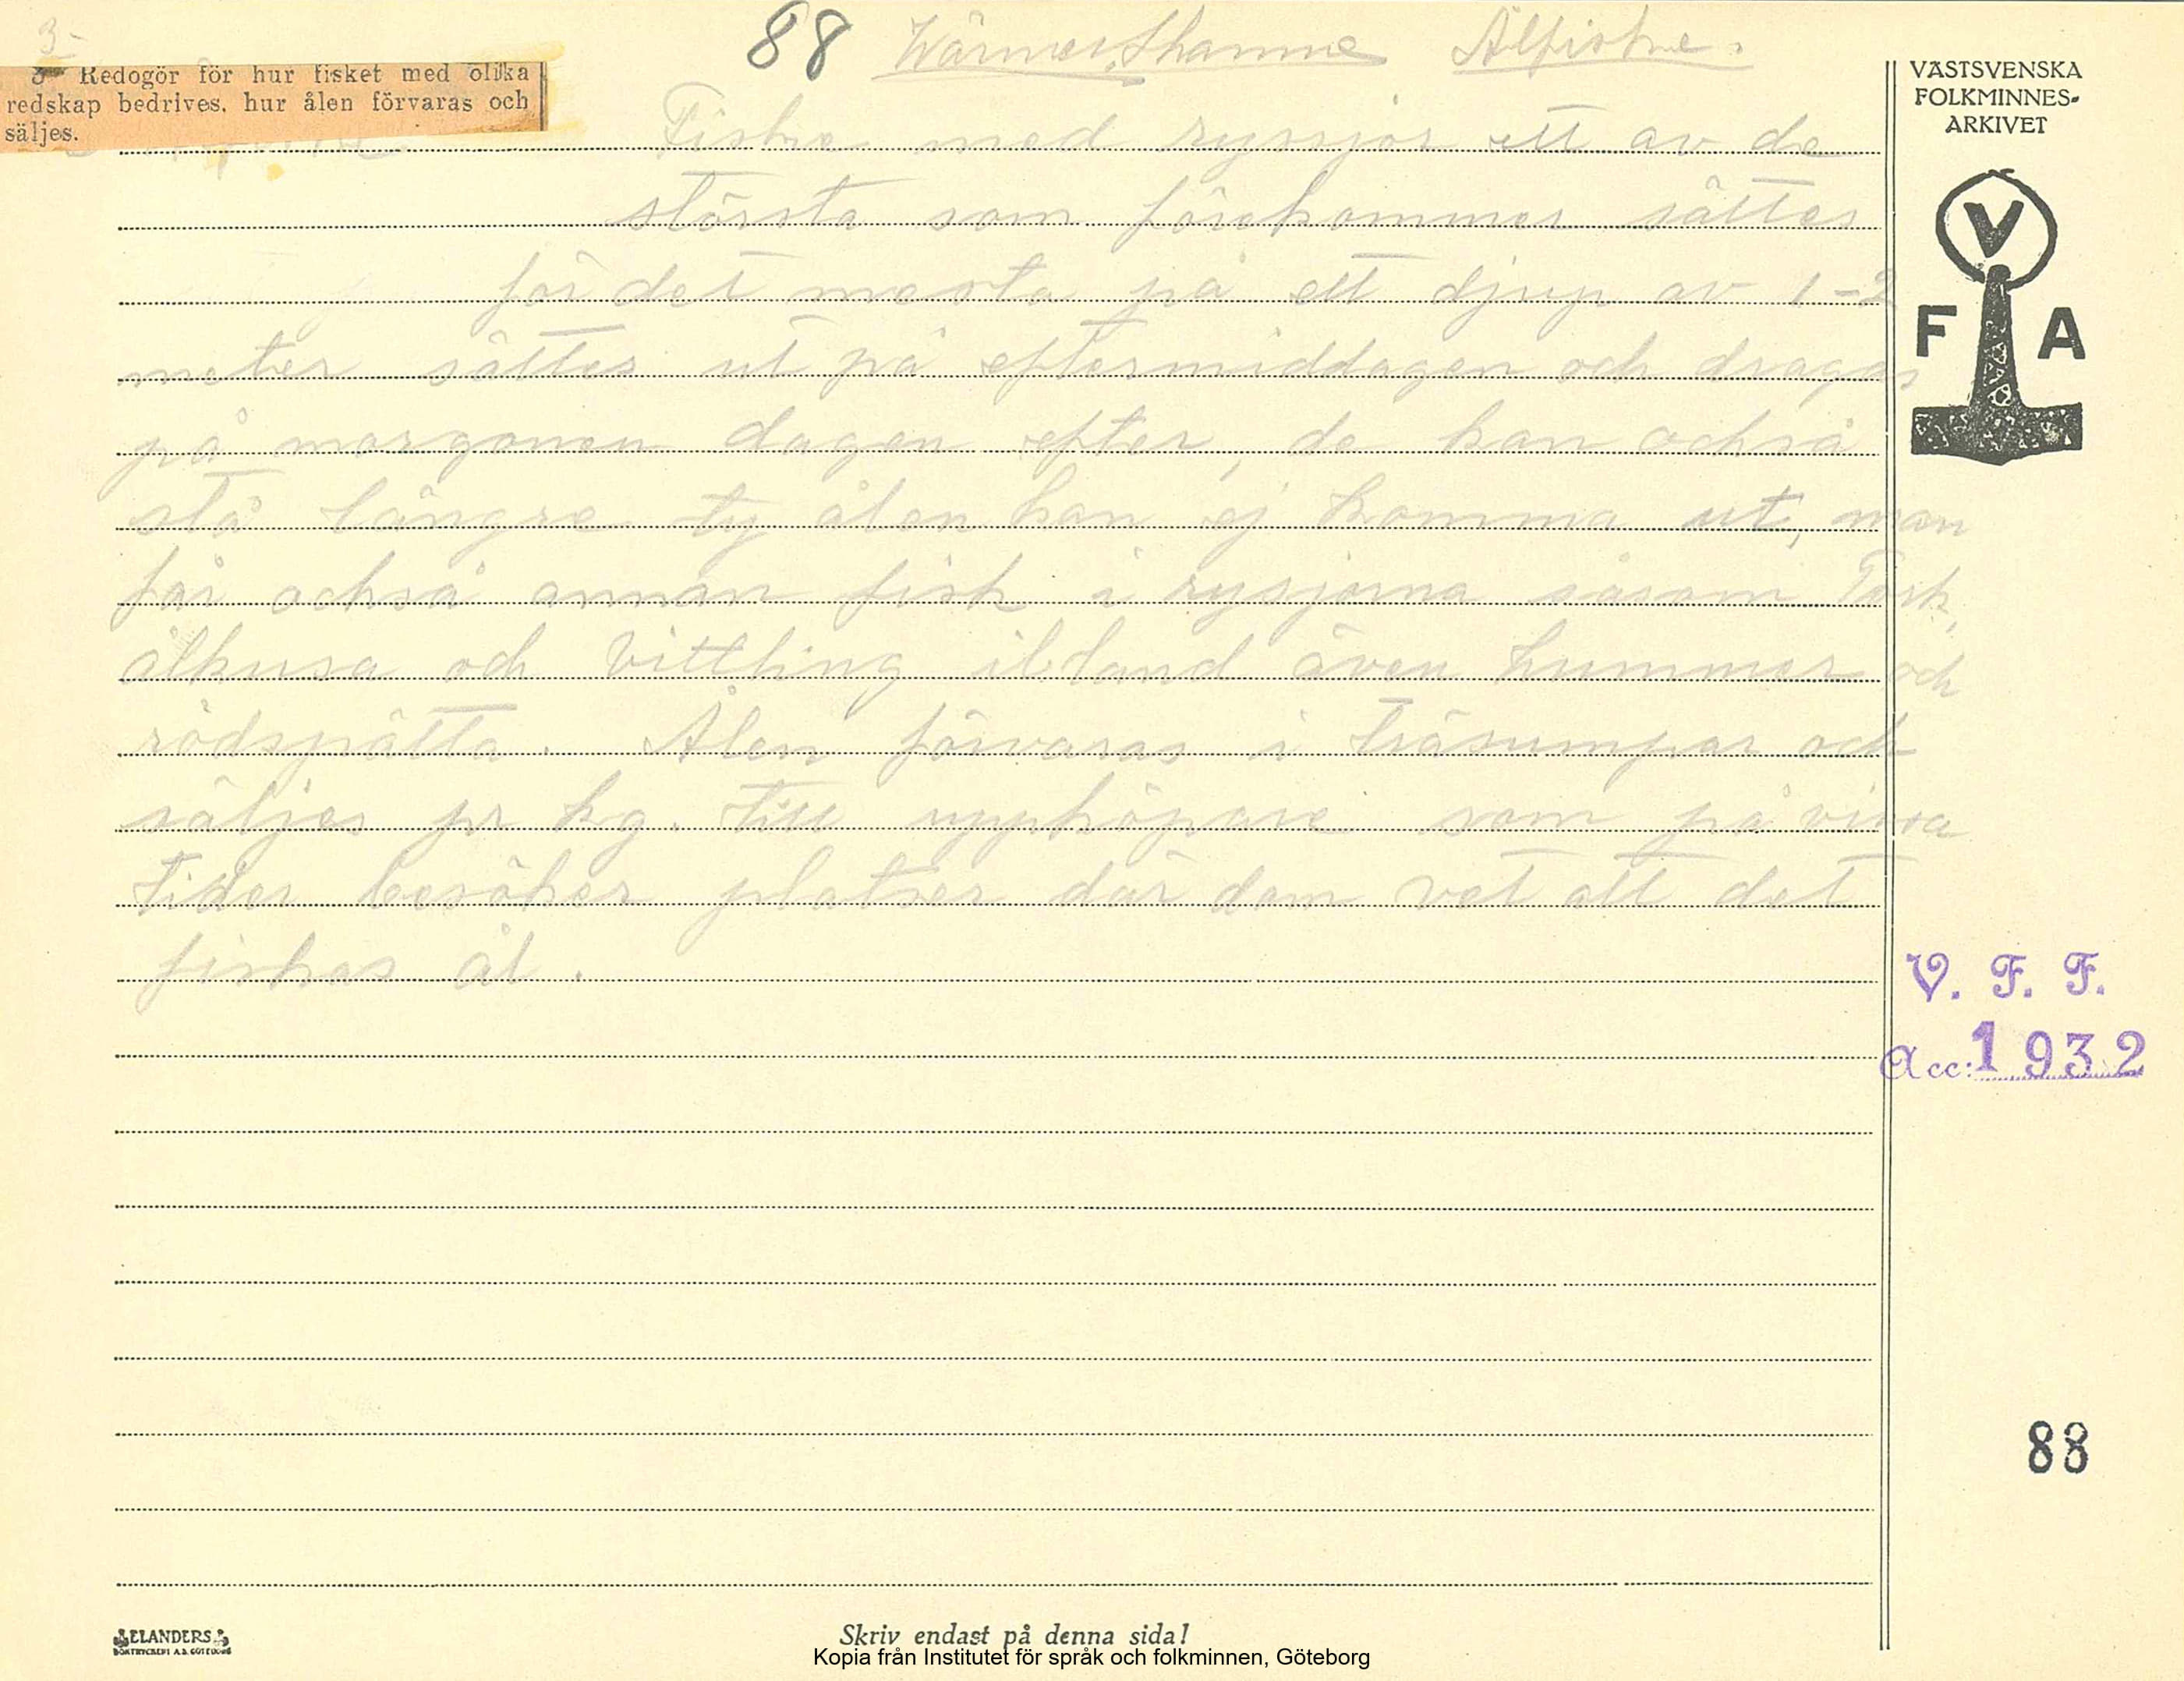 3-
88 Wärmer, Shamne Ålfiske.
3 Redogör för hur fisket med olika
redskap bedrives, hur ålen förvaras och
säljes.
Fiske med ryssjor ett av de
största som förekommer sättes
för det mesta på ett djup av 1-2
meter sättes ut på eftermiddagen och dragas
på morgonen dagen efter, de kan också
stå längre ty ålen kan ej komma ut, man
får också annan fisk i rysjorna såsom Torsk,
ålkusa och Vittling ibland även hummer och
rödspätta. Ålen förvaras i träsumpar och
säljes pr kg. till uppköpare som på vissa
tider besöker platser där dem vet att det
fiskas ål.
VÄSTSVENSKA
FOLKMINNES-
ARKIVET
V
F A
V. F. F.
Acc: 1932
88
ELANDERS
BOKTRYCKERI A.B. GÖTEBORG
Skriv endast på denna sida!
Kopia från Institutet för språk och folkminnen, Göteborg